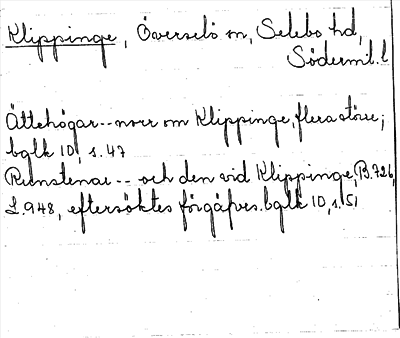 Klippinge, Överselö sn, Selebo hd,
Söderml. l
Ättehögar -- norr om Klippinge, flera större;
bglk 10, s. 47
Runstenar -- och den vid Klippinge, B.726,
L.948, eftersöktes förgäfves. bglk 10, s. 51